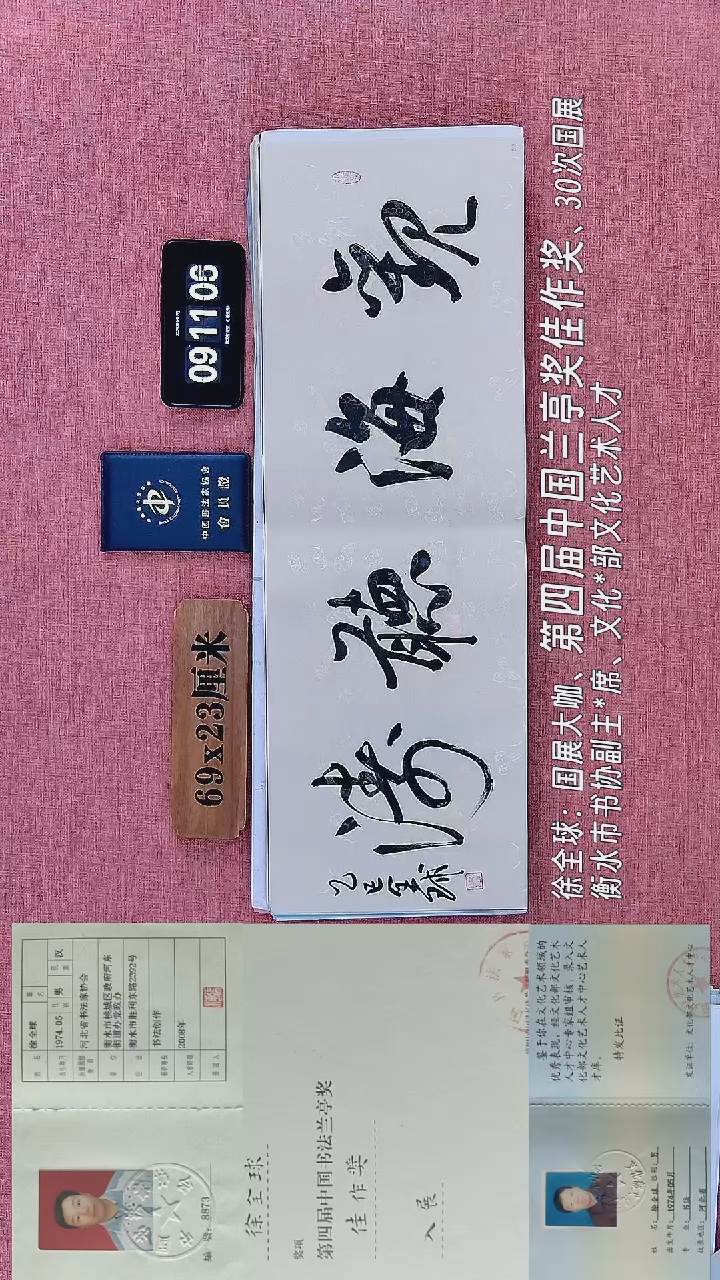 观海听涛
乙巳全球
09 11 05
中国书法家协会
會員證
69x23厘米
徐全球：国展大咖、第四届中国兰亭奖佳作奖、30次国展
衡水市书协副主*席、文化*部文化艺术人才
徐全球
1974.05 男 汉
河北省书法家协会
衡水市桃城区政府河东
街道办党政办
衡水市胜利东路2292号
书法创作
2008年
编号: 8873
徐全球
奖项
第四届中国书法兰亭奖
佳作奖
入展
鉴于你在文化艺术领域的
优秀表现，经文化部文化艺术
人才中心专家组审核，录入文
化部文化艺术人才中心艺术人
才库。
特发此证
发证单位：文化部文化艺术人才中心
姓名：徐全球 性别：男
出生年月：1974年05月
专业：书法